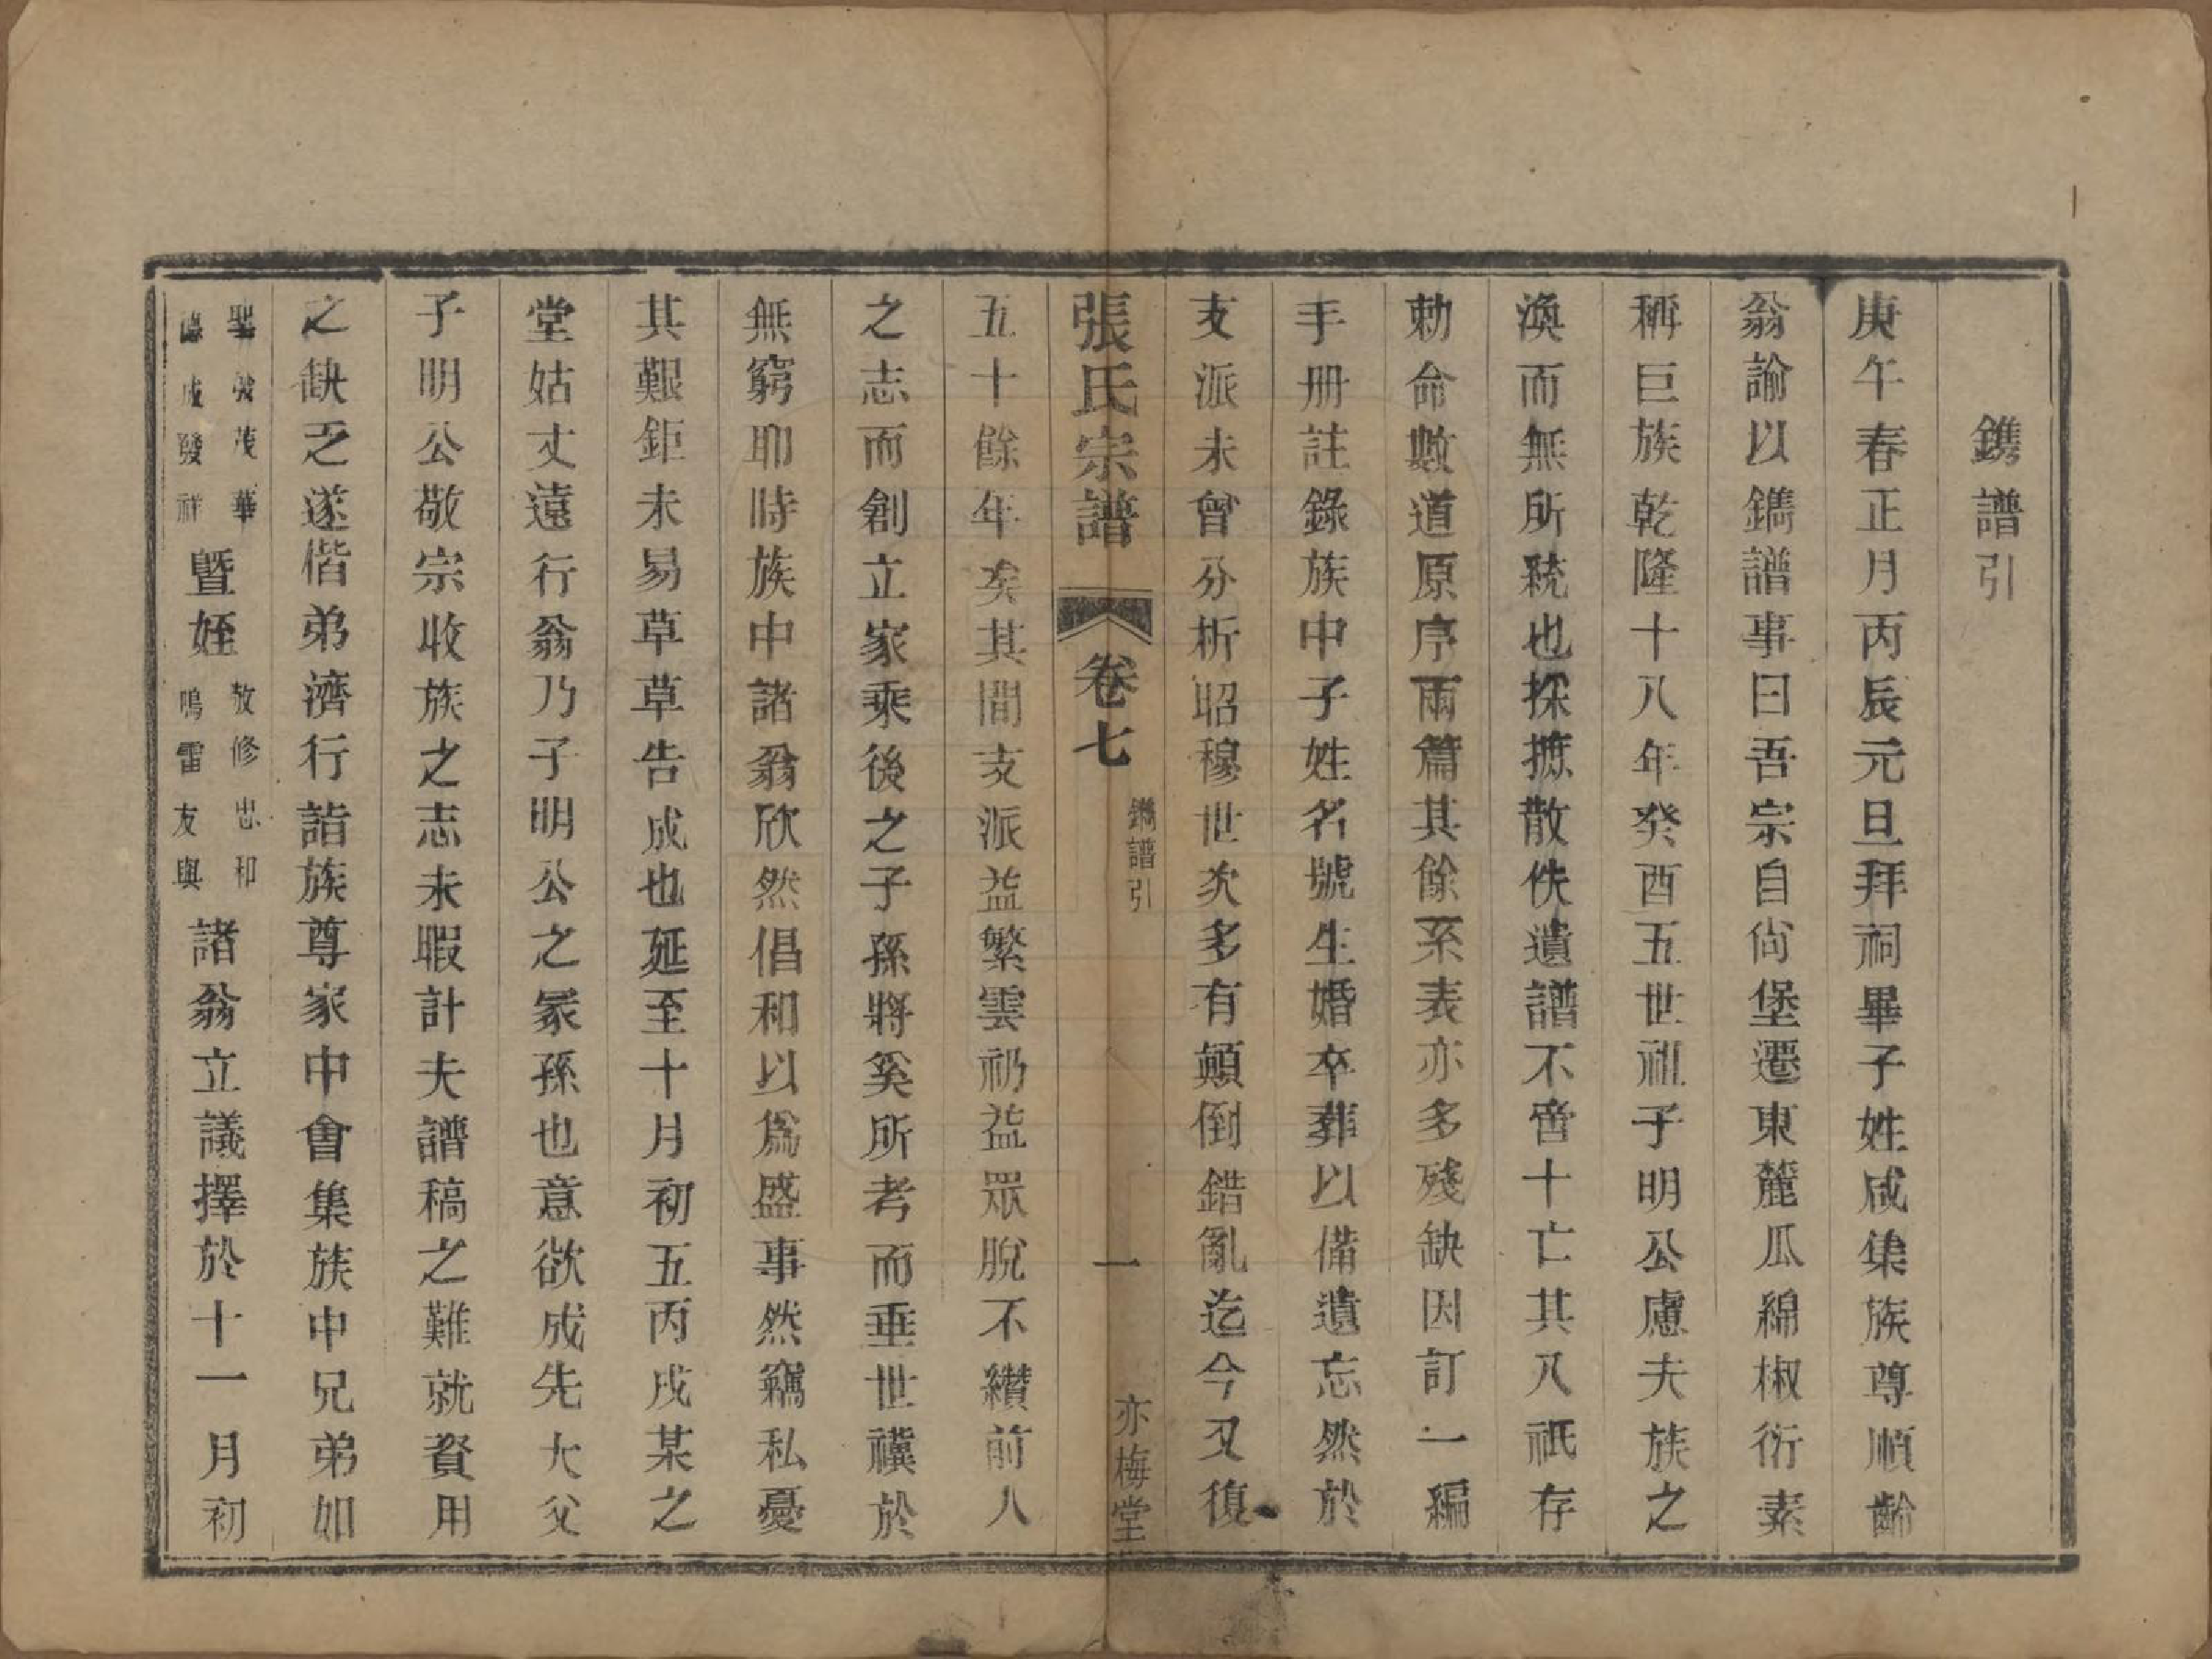 鐫譜引
庚午春正月丙辰元旦拜祠畢子姓咸集族尊順齡
翁諭以鐫譜事曰吾宗自尙堡遷東麓瓜綿椒衍素
稱巨族乾隆十八年癸酉五世祖子明公慮夫族之
渙而無所統也採摭散佚遺譜不啻十亡其八祇存
勅命數道原序兩篇其餘系表亦多殘缺因訂一編
手册註錄族中子姓名號生婚卒葬以備遺忘然於
支派未曾分析昭穆世次多有顛倒錯亂迄今又復
張氏宗譜 卷七 鐫譜引 一 亦梅堂
五十餘年矣其間支派益繁雲礽益眾脫不纘前人
之志而創立家乘後之子孫將奚所考而垂世禩於
無窮耶時族中諸翁欣然倡和以爲盛事然竊私憂
其艱鉅未易草草告成也延至十月初五丙戌某之
堂姑丈遠行翁乃子明公之冡孫也意欲成先大父
子明公敬宗收族之志未暇計夫譜稿之難就資用
之缺乏遂偕弟濟行詣族尊家中會集族中兄弟如
聖茂華
成發祥
暨姪
敖修忠和
鳴雷友與
諸翁立議擇於十一月初